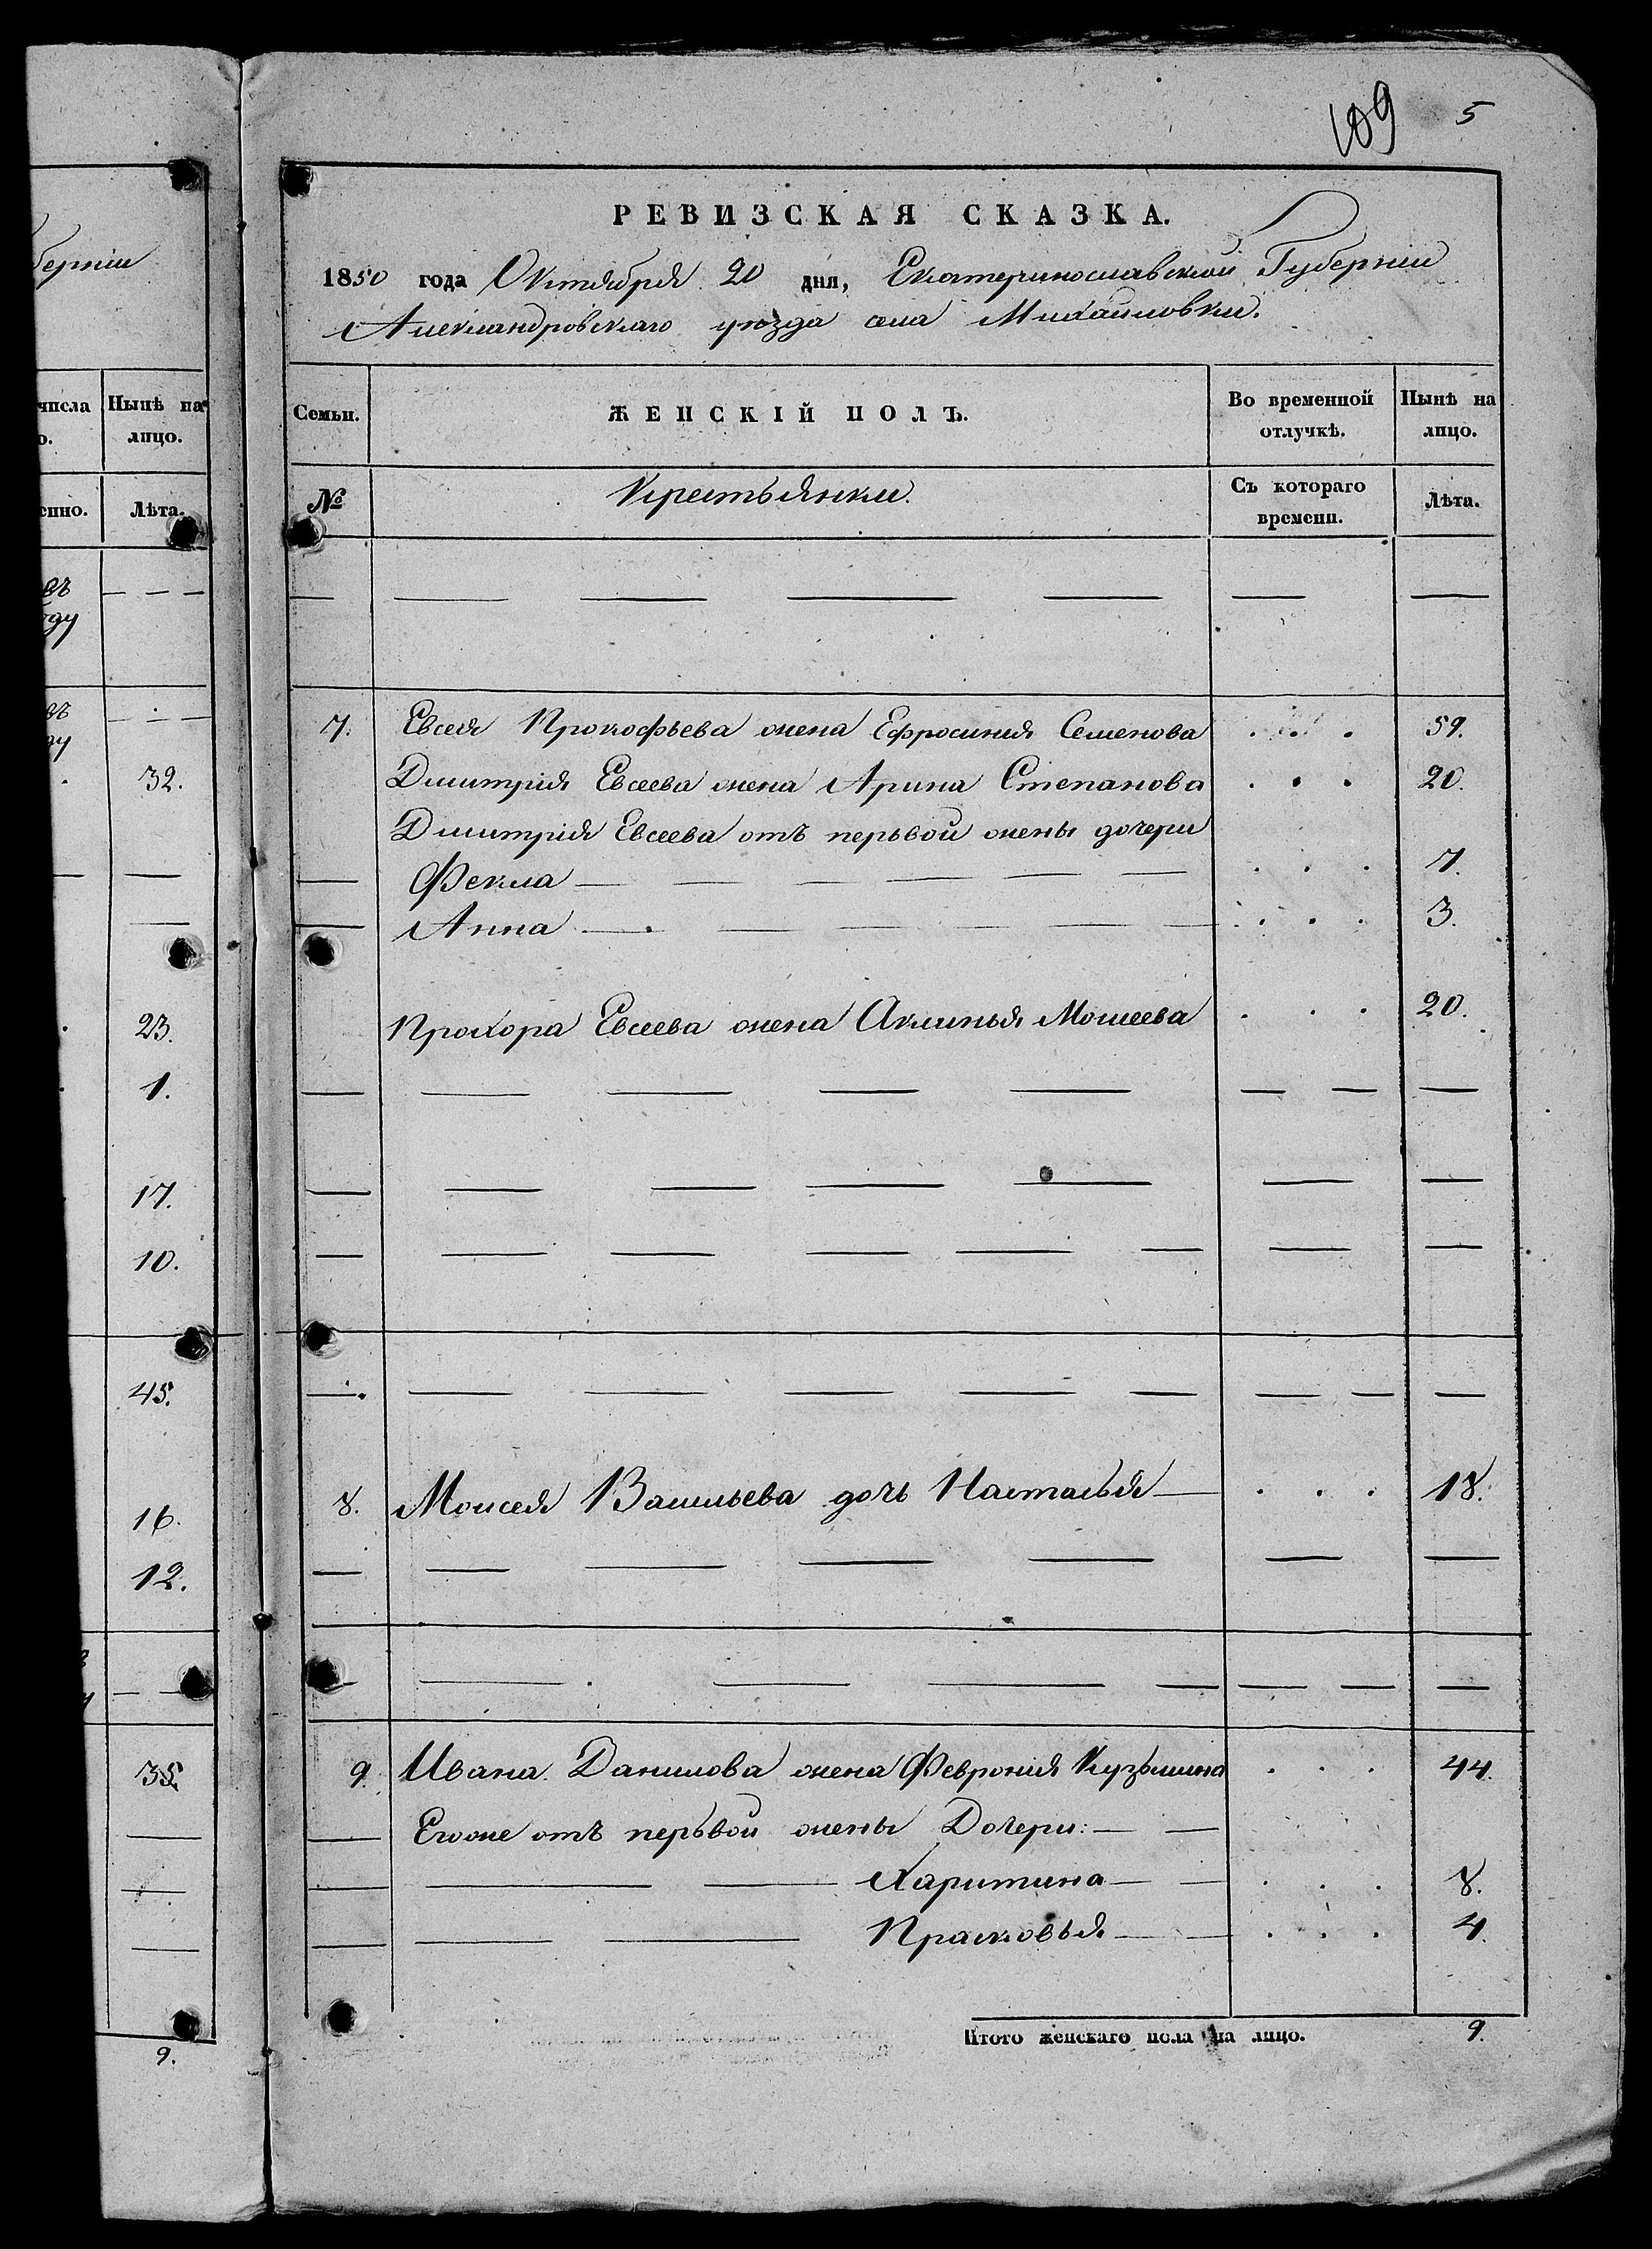 109 5
РЕВИЗСКАЯ СКАЗКА.
1850 года Октября 20 дня, Екатеринославской Губерніи
Александровскаго уѣзда села Михайловки.
берніи
числа
Нынѣ на лицо.
Лѣта.
32.
23.
1.
17.
10.
45.
16.
12.
35.
9.
Семьи. ЖЕНСКІЙ ПОЛЪ. Во временной отлучкѣ. Нынѣ на лицо.
№ Крестьянки. Съ котораго времени. Лѣта.
7. Евсея Прокофьева жена Ефросинія Семенова . . . 59.
Дмитрія Евсеева жена Арина Степанова . . . 20.
Дмитрія Евсеева отъ перьвой жены дочери
Фекла . . . 7.
Анна . . . 3.
Прохора Евсеева жена Акминья Мошеева . . . 20.
8. Моисея Васильева дочь Настасья . . . 18.
9. Ивана Данилова жена Февронія Кузьмина . . . 44.
Егоже отъ перьвой жены Дочери:
Харитина . . . 8.
Прасковья . . . 4.
Итого женскаго пола на лицо. 9.